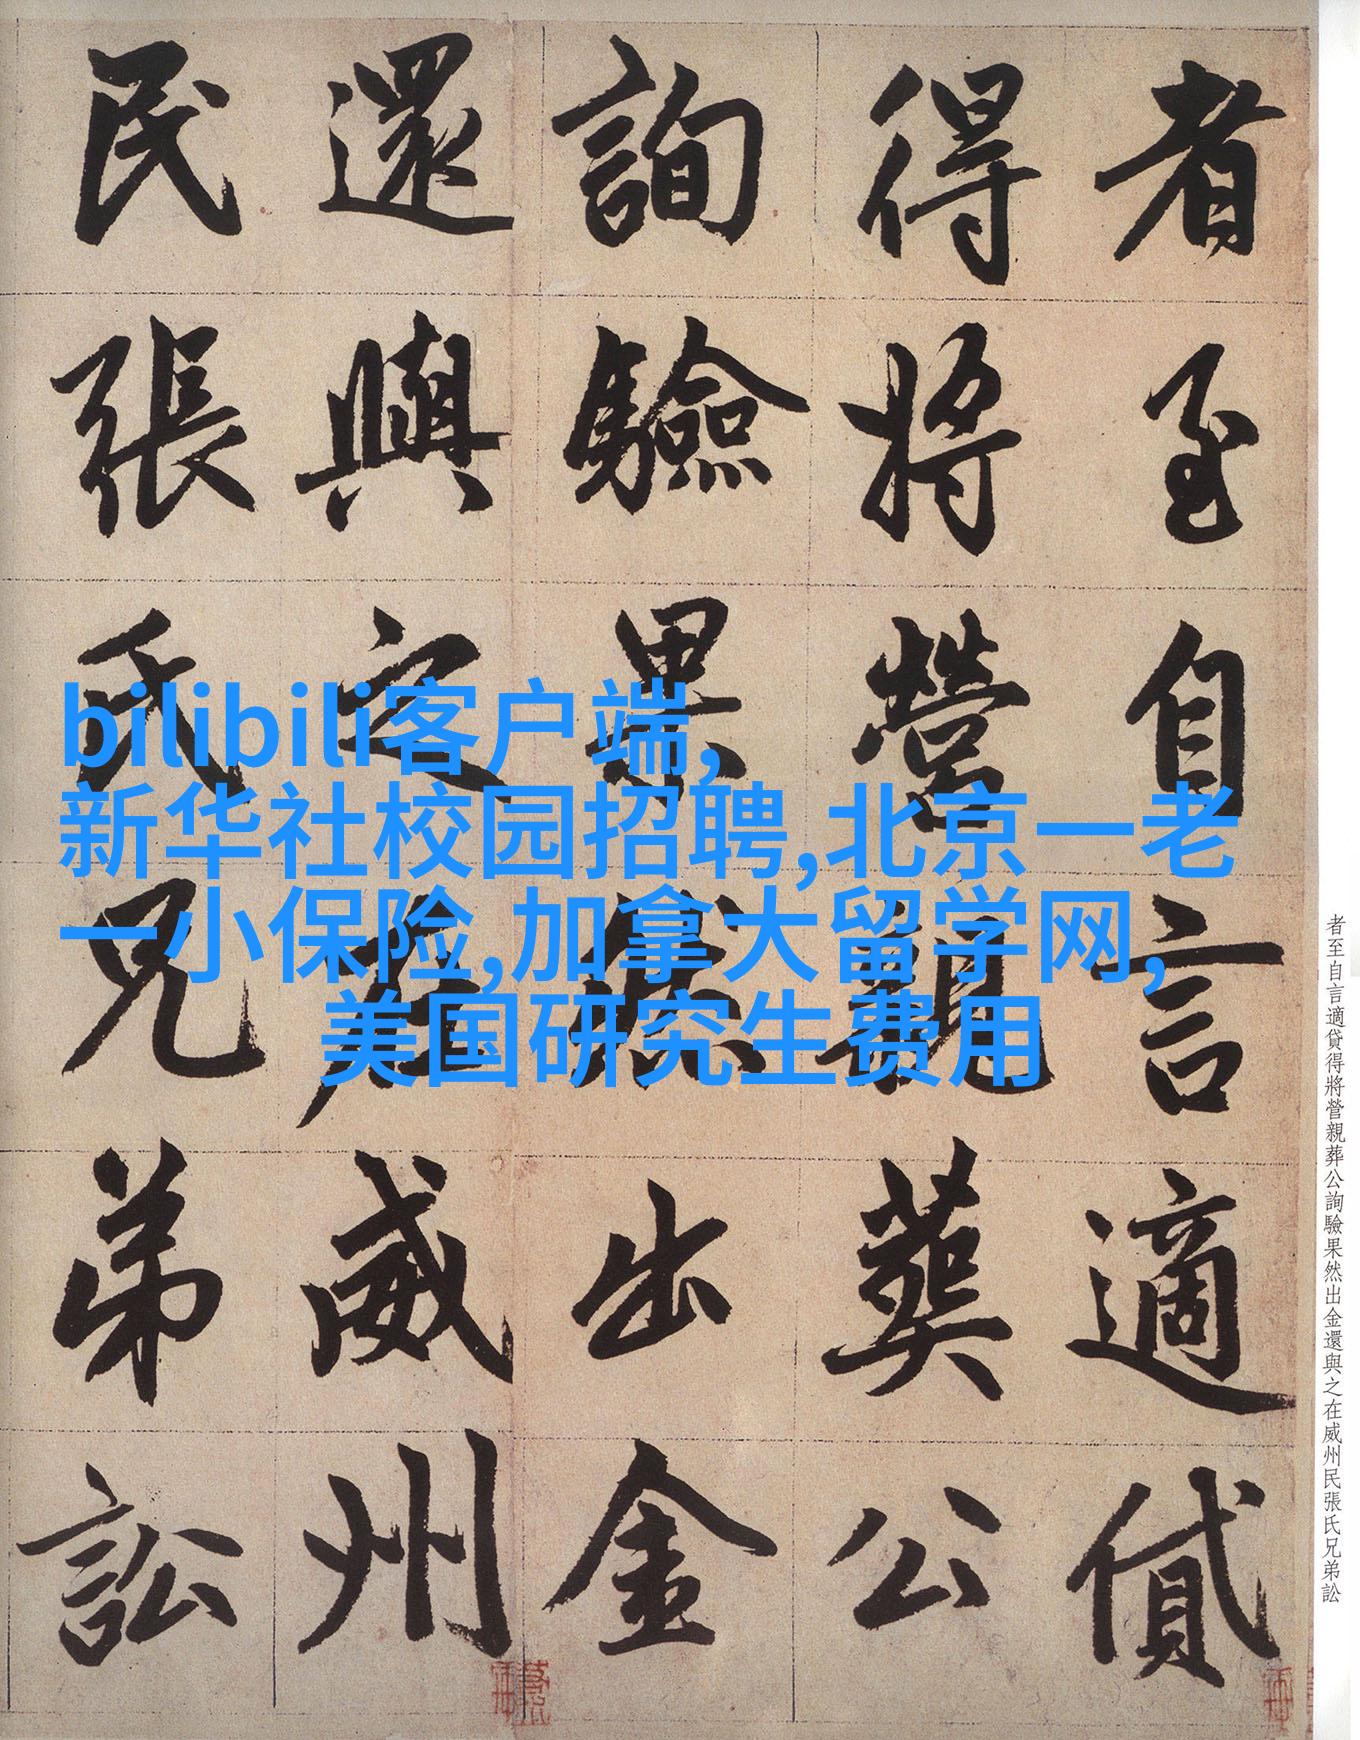 者至自言適貸
得將營親葬公
詢驗果然出金
還與之在威州
民張氏兄弟訟
bilibili客户端,
新华社校园招聘,北京一老
一小保险,加拿大留学网,
美国研究生费用
者至自言適貸得將營親葬公詢驗果然出金還與之在威州民張氏兄弟訟